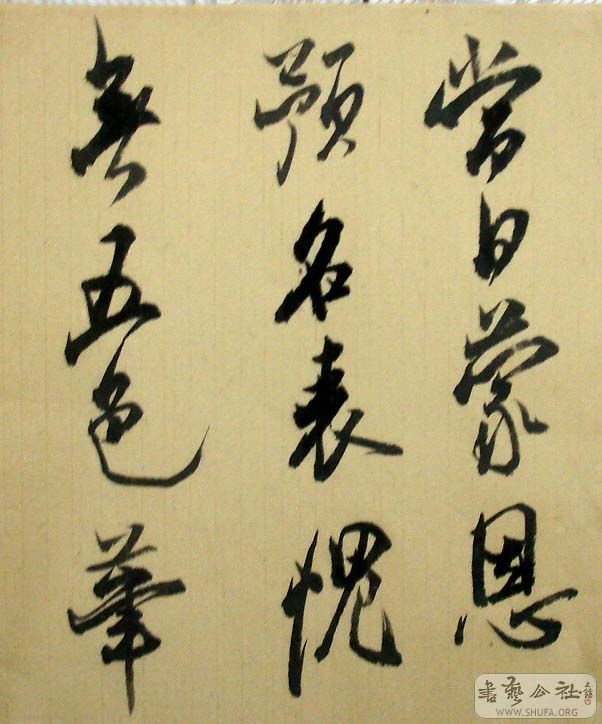 當日蒙恩
預名表愧
無五色筆
書藝公社
WWW.SHUFA.ORG